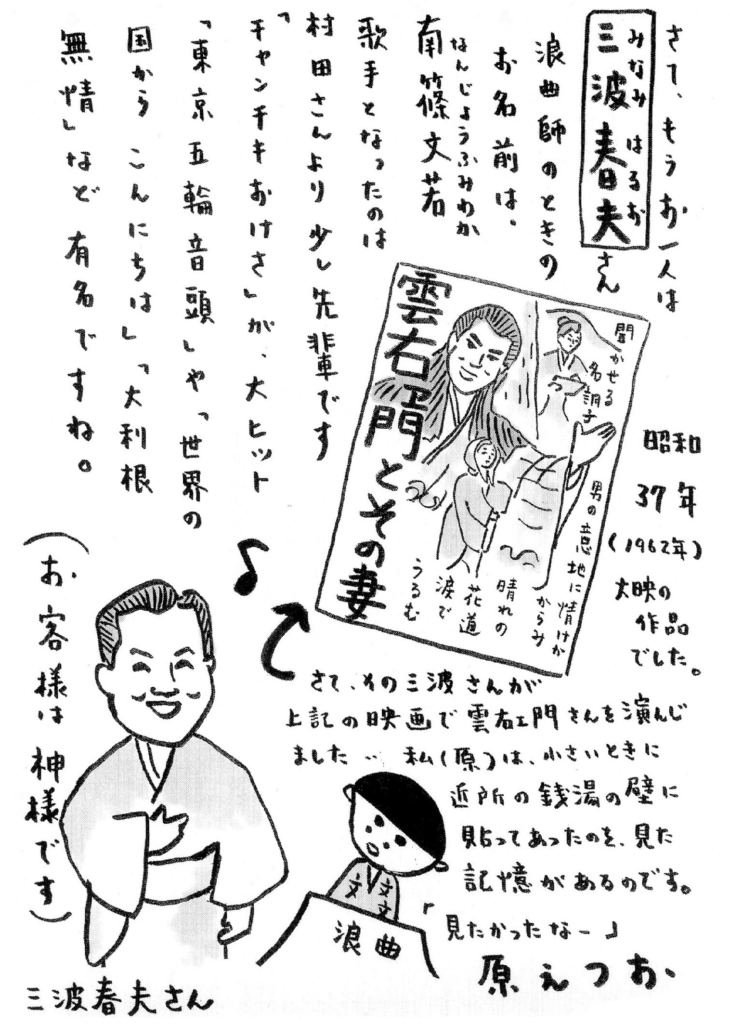 さて、もうお一人は
みなみ はるお
三波春夫さん
浪曲師のときの
お名前は、
なんじょうふみわか
南篠文若
歌手となったのは
村田さんより 少し先輩です
「チャンチキおけさ」が、大ヒット
「東京五輪音頭」や「世界の
国から こんにちは」「大利根
無情」など 有名ですね。
聞かせる
名調子
男の意地に情けが
からみ
晴れの
花道
涙で
うるむ
雲右ヱ門とその妻
昭和
37年
(1962年)
大映の
作品
でした。
さて、その三波さんが
上記の映画で雲右ヱ門さんを演んじ
ました‥ 私(原)は、小さいときに
近所の銭湯の壁に
貼ってあったのを、見た
記憶があるのです。
「見たかったなー」
原えつお
文
文
文
浪曲
(お客様は神様です)
三波春夫さん